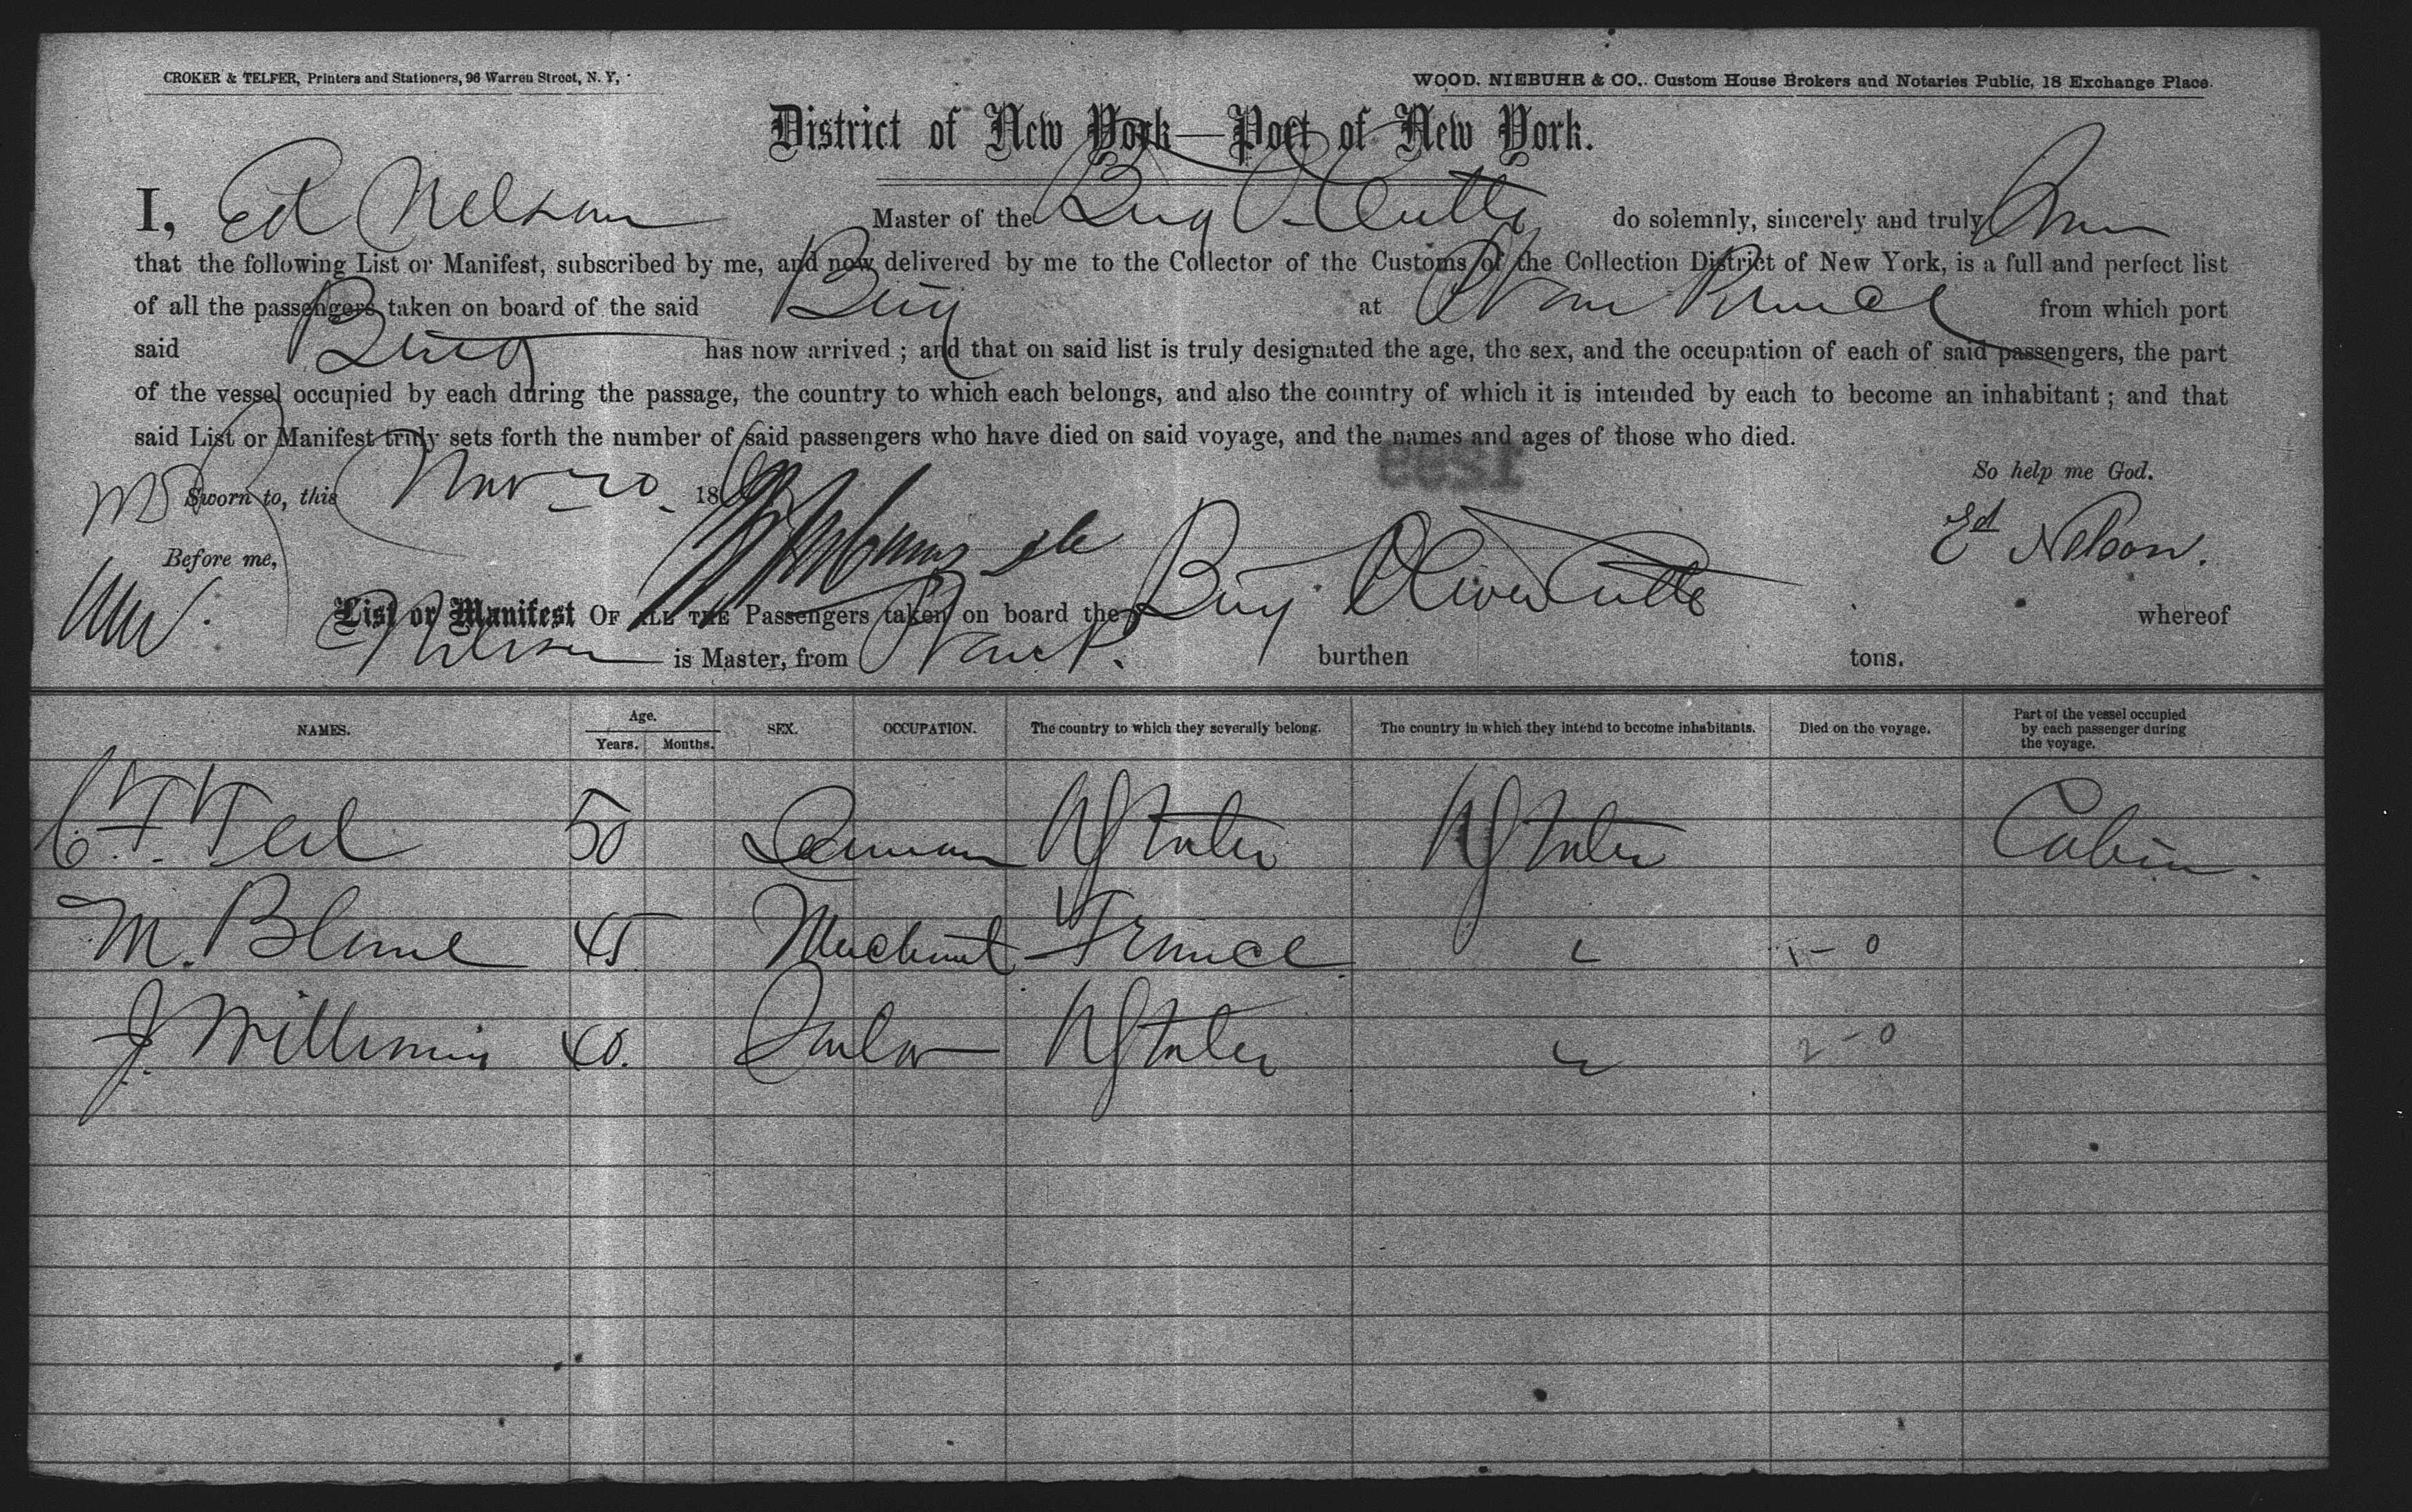 CROKER & TELFER, Printers and Stationers, 96 Warren Street, N. Y,
WOOD. NIEBUHR & CO,. Custom House Brokers and Notaries Public, 18 Exchange Place.
District of New York—Port of New York.
I, Ed Nelson Master of the Brig O. Cutts do solemnly, sincerely and truly
that the following List or Manifest, subscribed by me, and now delivered by me to the Collector of the Customs of the Collection District of New York, is a full and perfect list
of all the passengers taken on board of the said Brig at from which port
said Brig has now arrived; and that on said list is truly designated the age, the sex, and the occupation of each of said passengers, the part
of the vessel occupied by each during the passage, the country to which each belongs, and also the country of which it is intended by each to become an inhabitant; and that
said List or Manifest truly sets forth the number of said passengers who have died on said voyage, and the names and ages of those who died.
So help me God.
Sworn to, this Nov 20 18
Ed Nelson.
Before me,
List or Manifest OF ALL THE Passengers taken on board the Brig Oliver Cutts whereof
Nelson is Master, from burthen tons.
NAMES. Age. Years. Months. SEX. OCCUPATION. The country to which they severally belong. The country in which they intend to become inhabitants. Died on the voyage. Part of the vessel occupied by each passenger during the voyage.
50 Seaman U States U States Cabin.
M. 45 Merchant France " 1 - 0
J. Williams 40. Sailor U States " 2 - 0